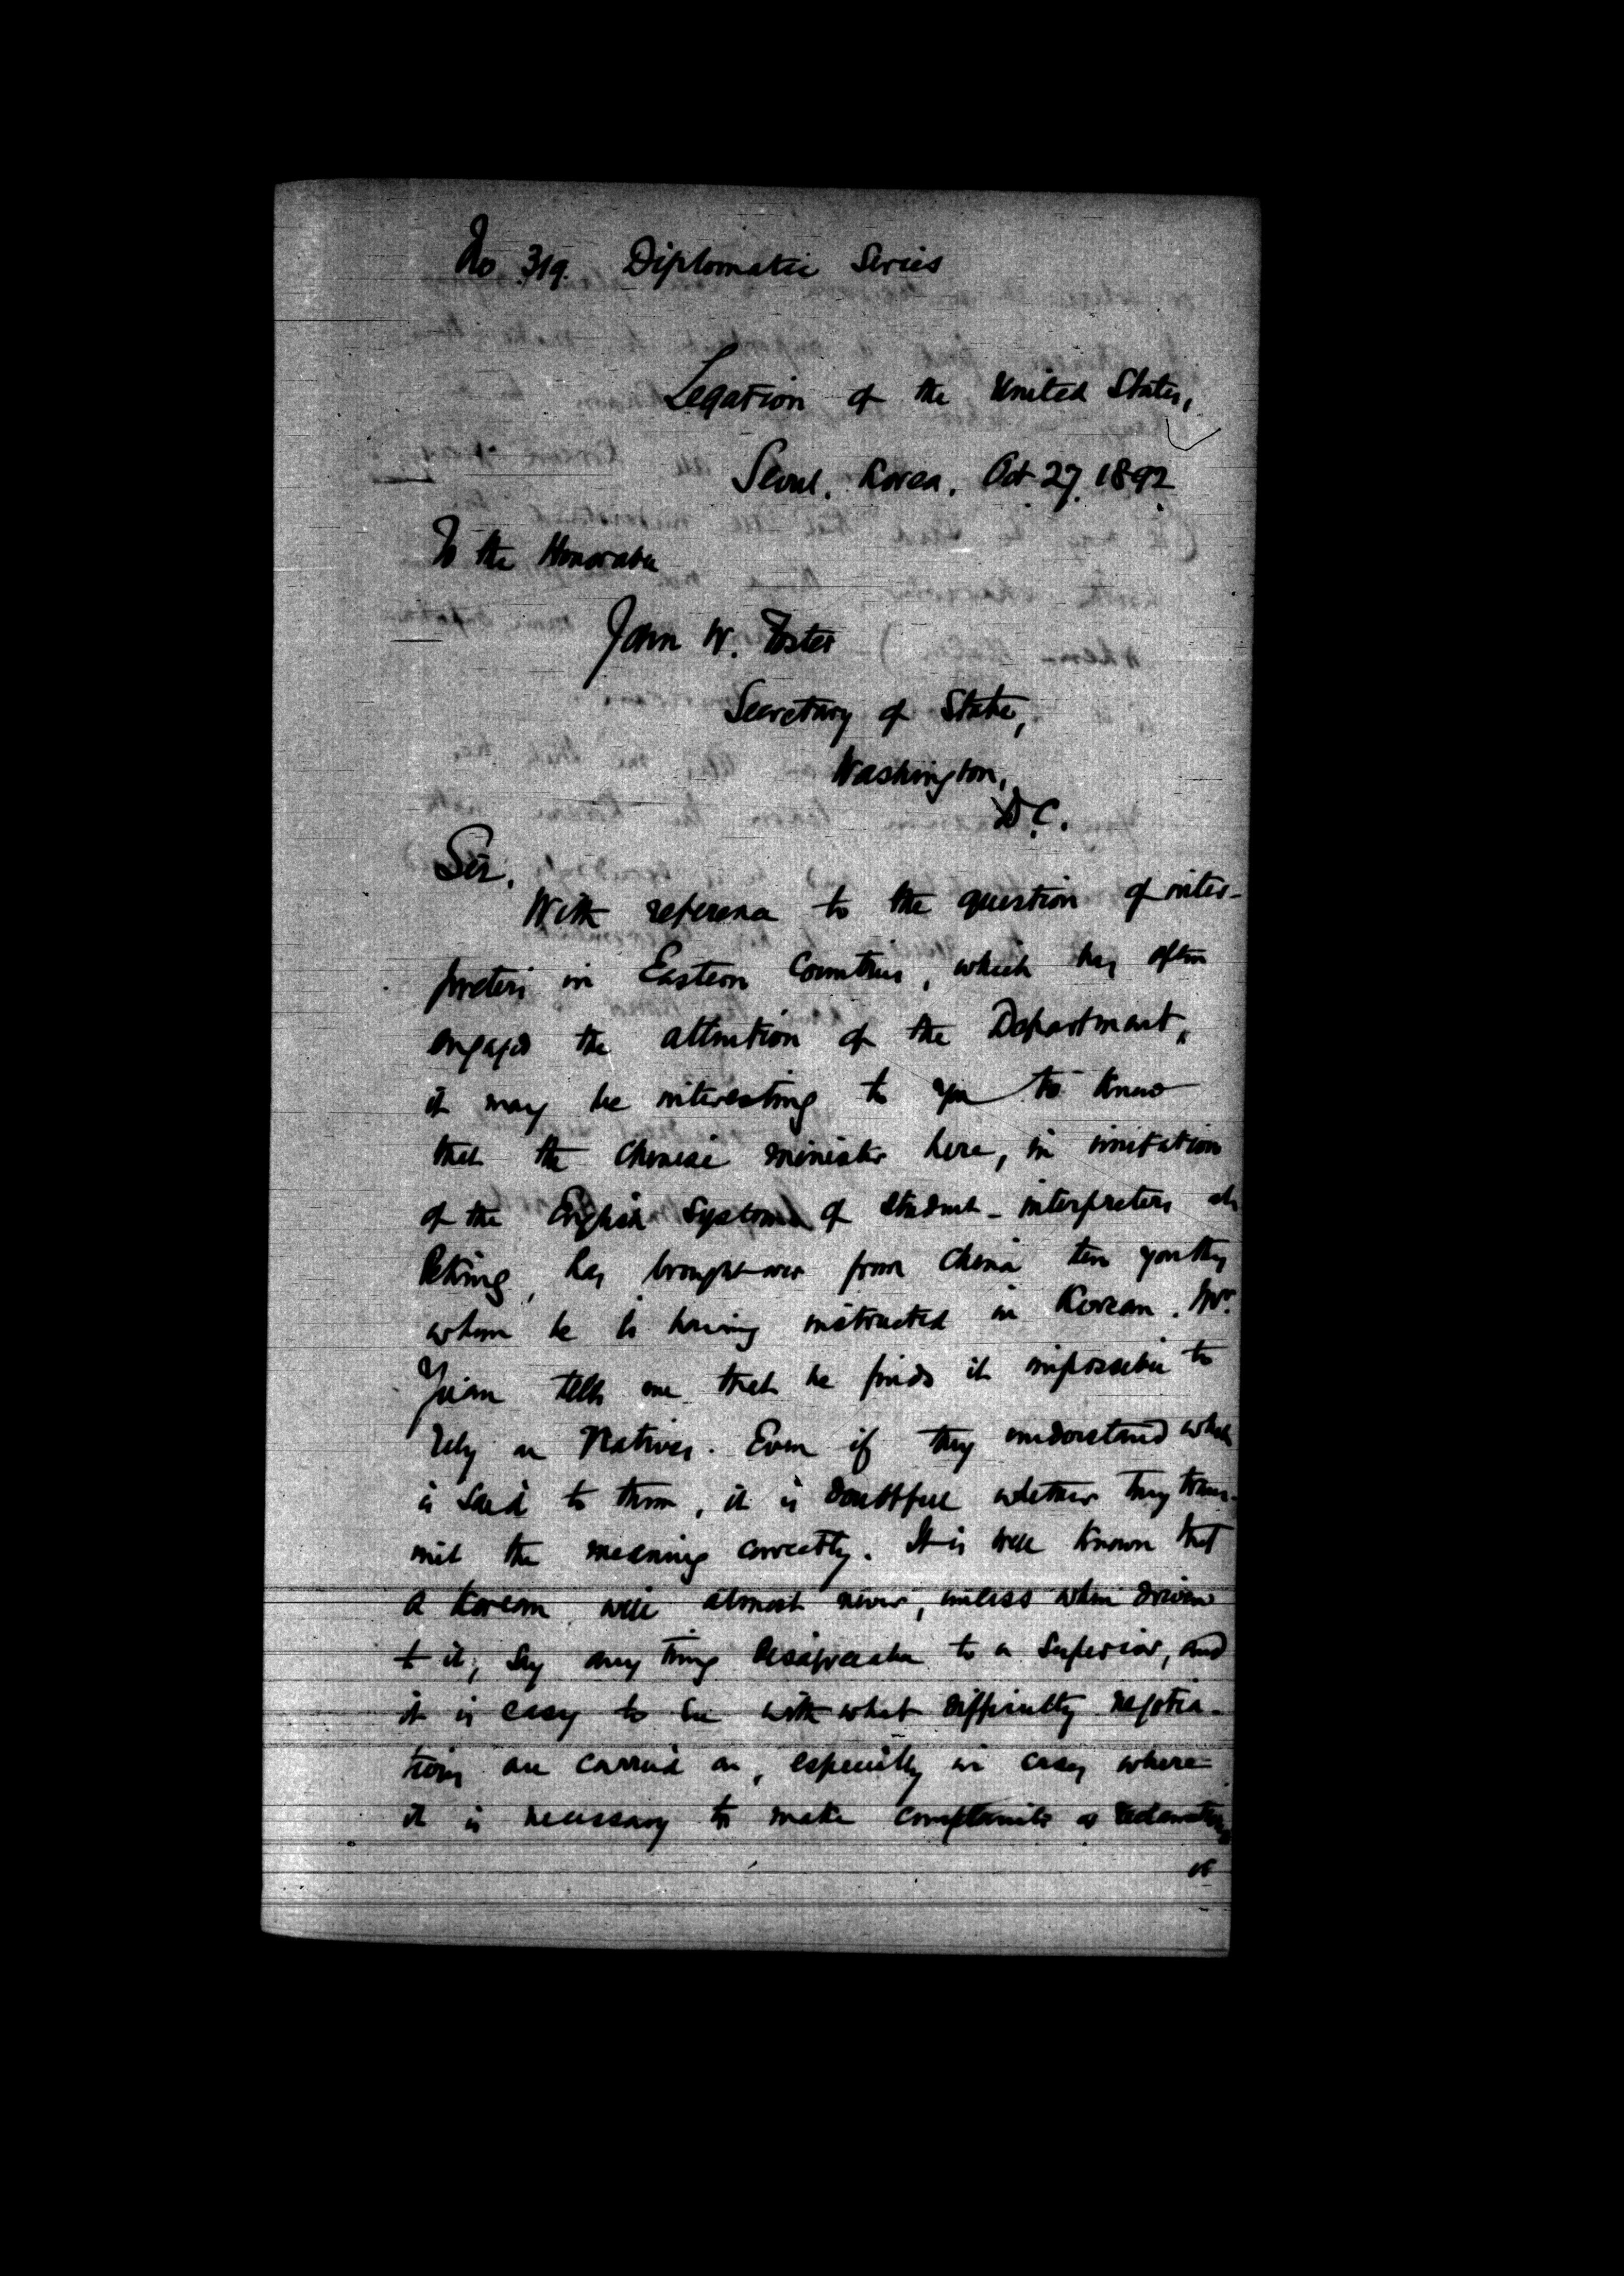 No. 319. Diplomatic Series
Legation of the United States,
Seoul. Korea. Oct 27. 1892.
To the Honorable
John W. Foster
Secretary of State,
Washington,
D.C.
Sir.
With reference to the question of inter-
preters in Eastern Countries, which has often
engaged the attention of the Department,
it may be interesting to you to know
that the Chinese minister here, in imitation
of the English System of student-interpreters at
Peking, has brought over from China ten youths
whom he is having instructed in Korean. Mr.
Yuan tells me that he finds it impossible to
rely on Natives. Even if they understand what
is said to them, it is doubtful whether they trans-
mit the meaning correctly. It is well known that
a Korean will almost never, unless when driven
to it, say any thing disagreeable to a Superior, and
it is easy to see with what difficulty negotia-
tions are carried on, especially in cases where
it is necessary to make complaints or reclamations